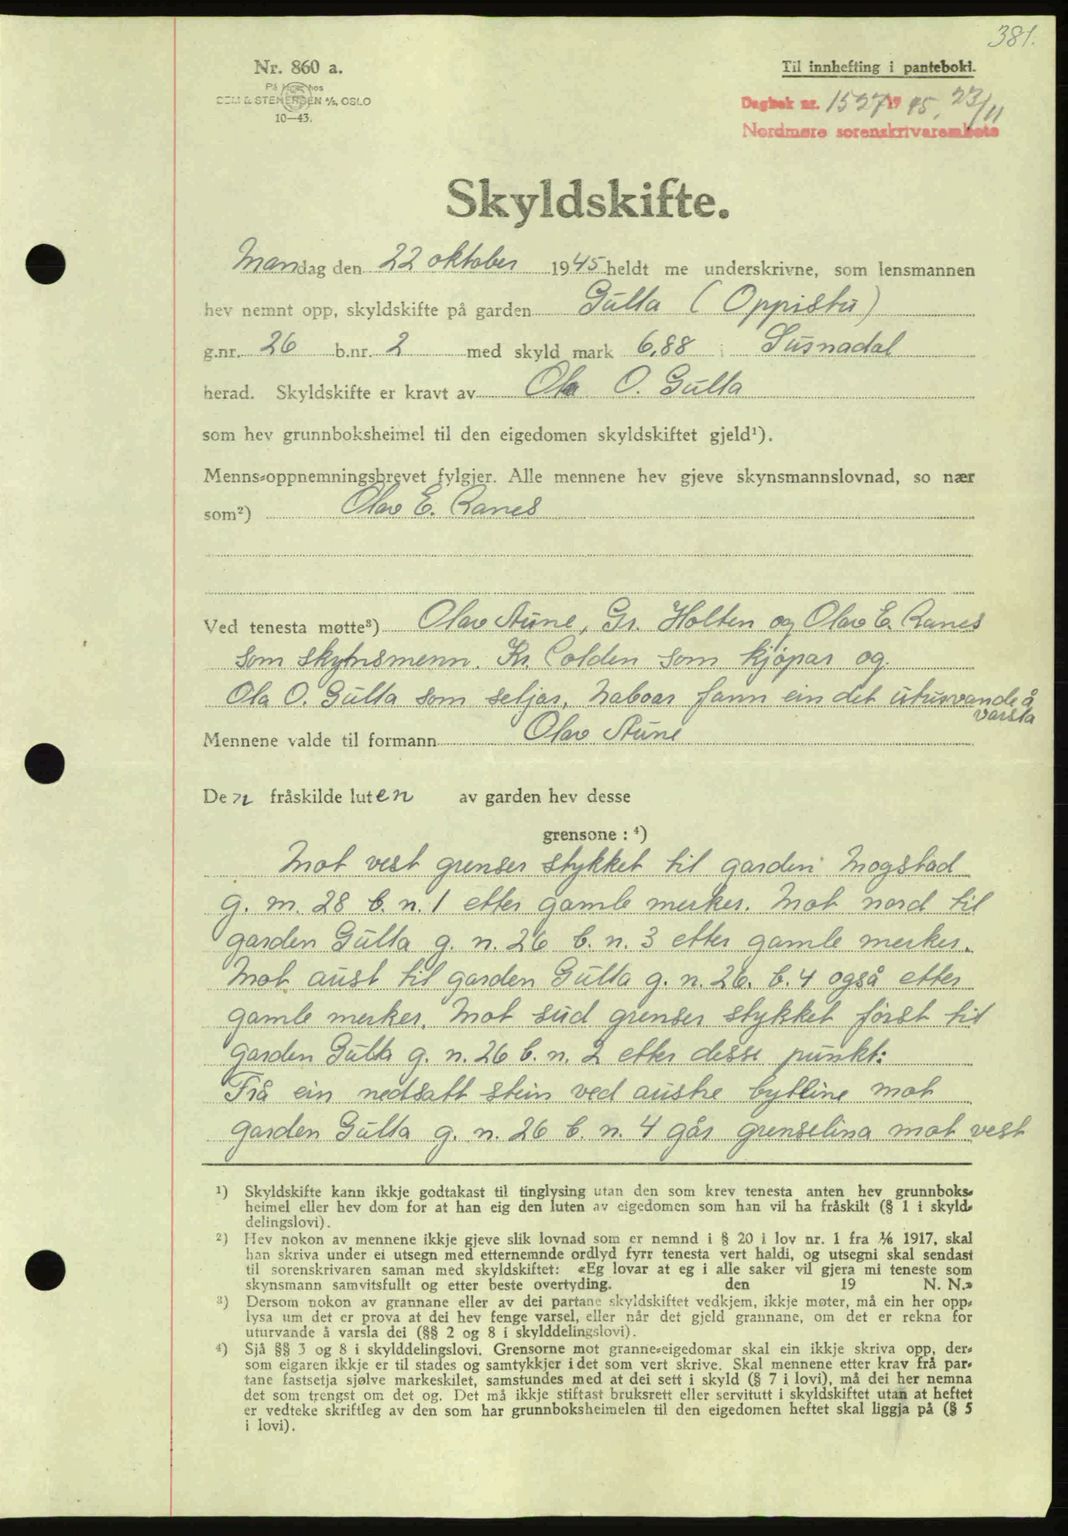 381.
Nr. 860 a.
Til innhefting i pantebok.
På lager hos
SEM & STENERSEN A/S, OSLO
10—43.
Dagbok nr. 1527 19 45, 23/11
Nordmøre sorenskrivarembete
Skyldskifte.
Mandag den 22 oktober 1945 heldt me underskrivne, som lensmannen
hev nemnt opp, skyldskifte på garden Gulla (Oppistu)
g.nr. 26 b.nr. 2 med skyld mark 6,88 i Surnadal
herad. Skyldskifte er kravt av Ola O. Gulla
som hev grunnboksheimel til den eigedomen skyldskiftet gjeld¹).
Menns-oppnemningsbrevet fylgjer. Alle mennene hev gjeve skynsmannslovnad, so nær
som²) Olav E. Ranes
Ved tenesta møtte³) Olav Aune, Gr. Holten og Olav E. Ranes
som skynsmenn. Kr. Colden som kjøpar og
Ola O. Gulla som seljar. Naboar fann ein det uturvande å
varsla
Mennene valde til formann Olav Aune
Den fråskilde luten av garden hev desse
grensone : ⁴)
Mot vest grenser stykket til garden Mogstad
g. nr. 28 b. n. 1 etter gamle merker. Mot nord til
garden Gulla g. n. 26 b. n. 3 etter gamle merker.
Mot aust til garden Gulla g. n. 26. b. 4 også etter
gamle merker. Mot sud grenser stykket først til
garden Gulla g. n. 26 b. n. 2 etter desse punkt:
Frå ein nedsatt stein ved austre bytline mot
garden Gulla g. n. 26 b. n. 4 går grenselina mot vest
¹) Skyldskifte kann ikkje godtakast til tinglysing utan den som krev tenesta anten hev grunnboks-
heimel eller hev dom for at han eig den luten av eigedomen som han vil ha fråskilt (§ 1 i skyld-
delingslovi).
²) Hev nokon av mennene ikkje gjeve slik lovnad som er nemnd i § 20 i lov nr. 1 fra 1/6 1917, skal
han skriva under ei utsegn med etternemnde ordlyd fyrr tenesta vert haldi, og utsegni skal sendast
til sorenskrivaren saman med skyldskiftet: «Eg lovar at eg i alle saker vil gjera mi teneste som
skynsmann samvitsfullt og etter beste overtyding. den 19 N. N.»
³) Dersom nokon av grannane eller av dei partane skyldskiftet vedkjem, ikkje møter, må ein her opp-
lysa um det er prova at dei hev fenge varsel, eller når det gjeld grannane, om det er rekna for
uturvande å varsla dei (§§ 2 og 8 i skylddelingslovi).
⁴) Sjå §§ 3 og 8 i skylddelingslovi. Grensorne mot granne-eigedomar skal ein ikkje skriva opp, der-
som eigaren ikkje er til stades og samtykkjer i det som vert skrive. Skal mennene etter krav frå par-
tane fastsetja sjølve markeskilet, samstundes med at dei sett i skyld (§ 7 i lovi), må dei her nemna
det som trengst om det og. Det må ikkje stiftast bruksrett eller servitutt i skyldskiftet utan at heftet
er vedteke skriftleg av den som har grunnboksheimelen til den eigedomen heftet skal liggja på (§ 5
i lovi).